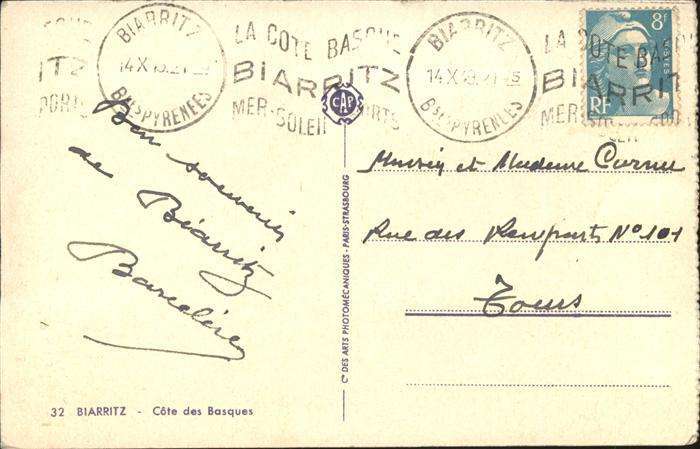 BIARRITZ
BSES PYRENEES
LA COTE BASQUE
BIARRITZ
MER-SOLEIL
BIARRITZ
BSES PYRENEES
LA COTE BASQUE
BIARRITZ
MER-SOLEIL
8F
POSTES
RF
CAP
Bon souvenir
de Biarritz
Monsieur et Madame
Rue des Remparts N° 101
Tours
Cie DES ARTS PHOTOMÉCANIQUES - PARIS-STRASBOURG
32 BIARRITZ - Côte des Basques